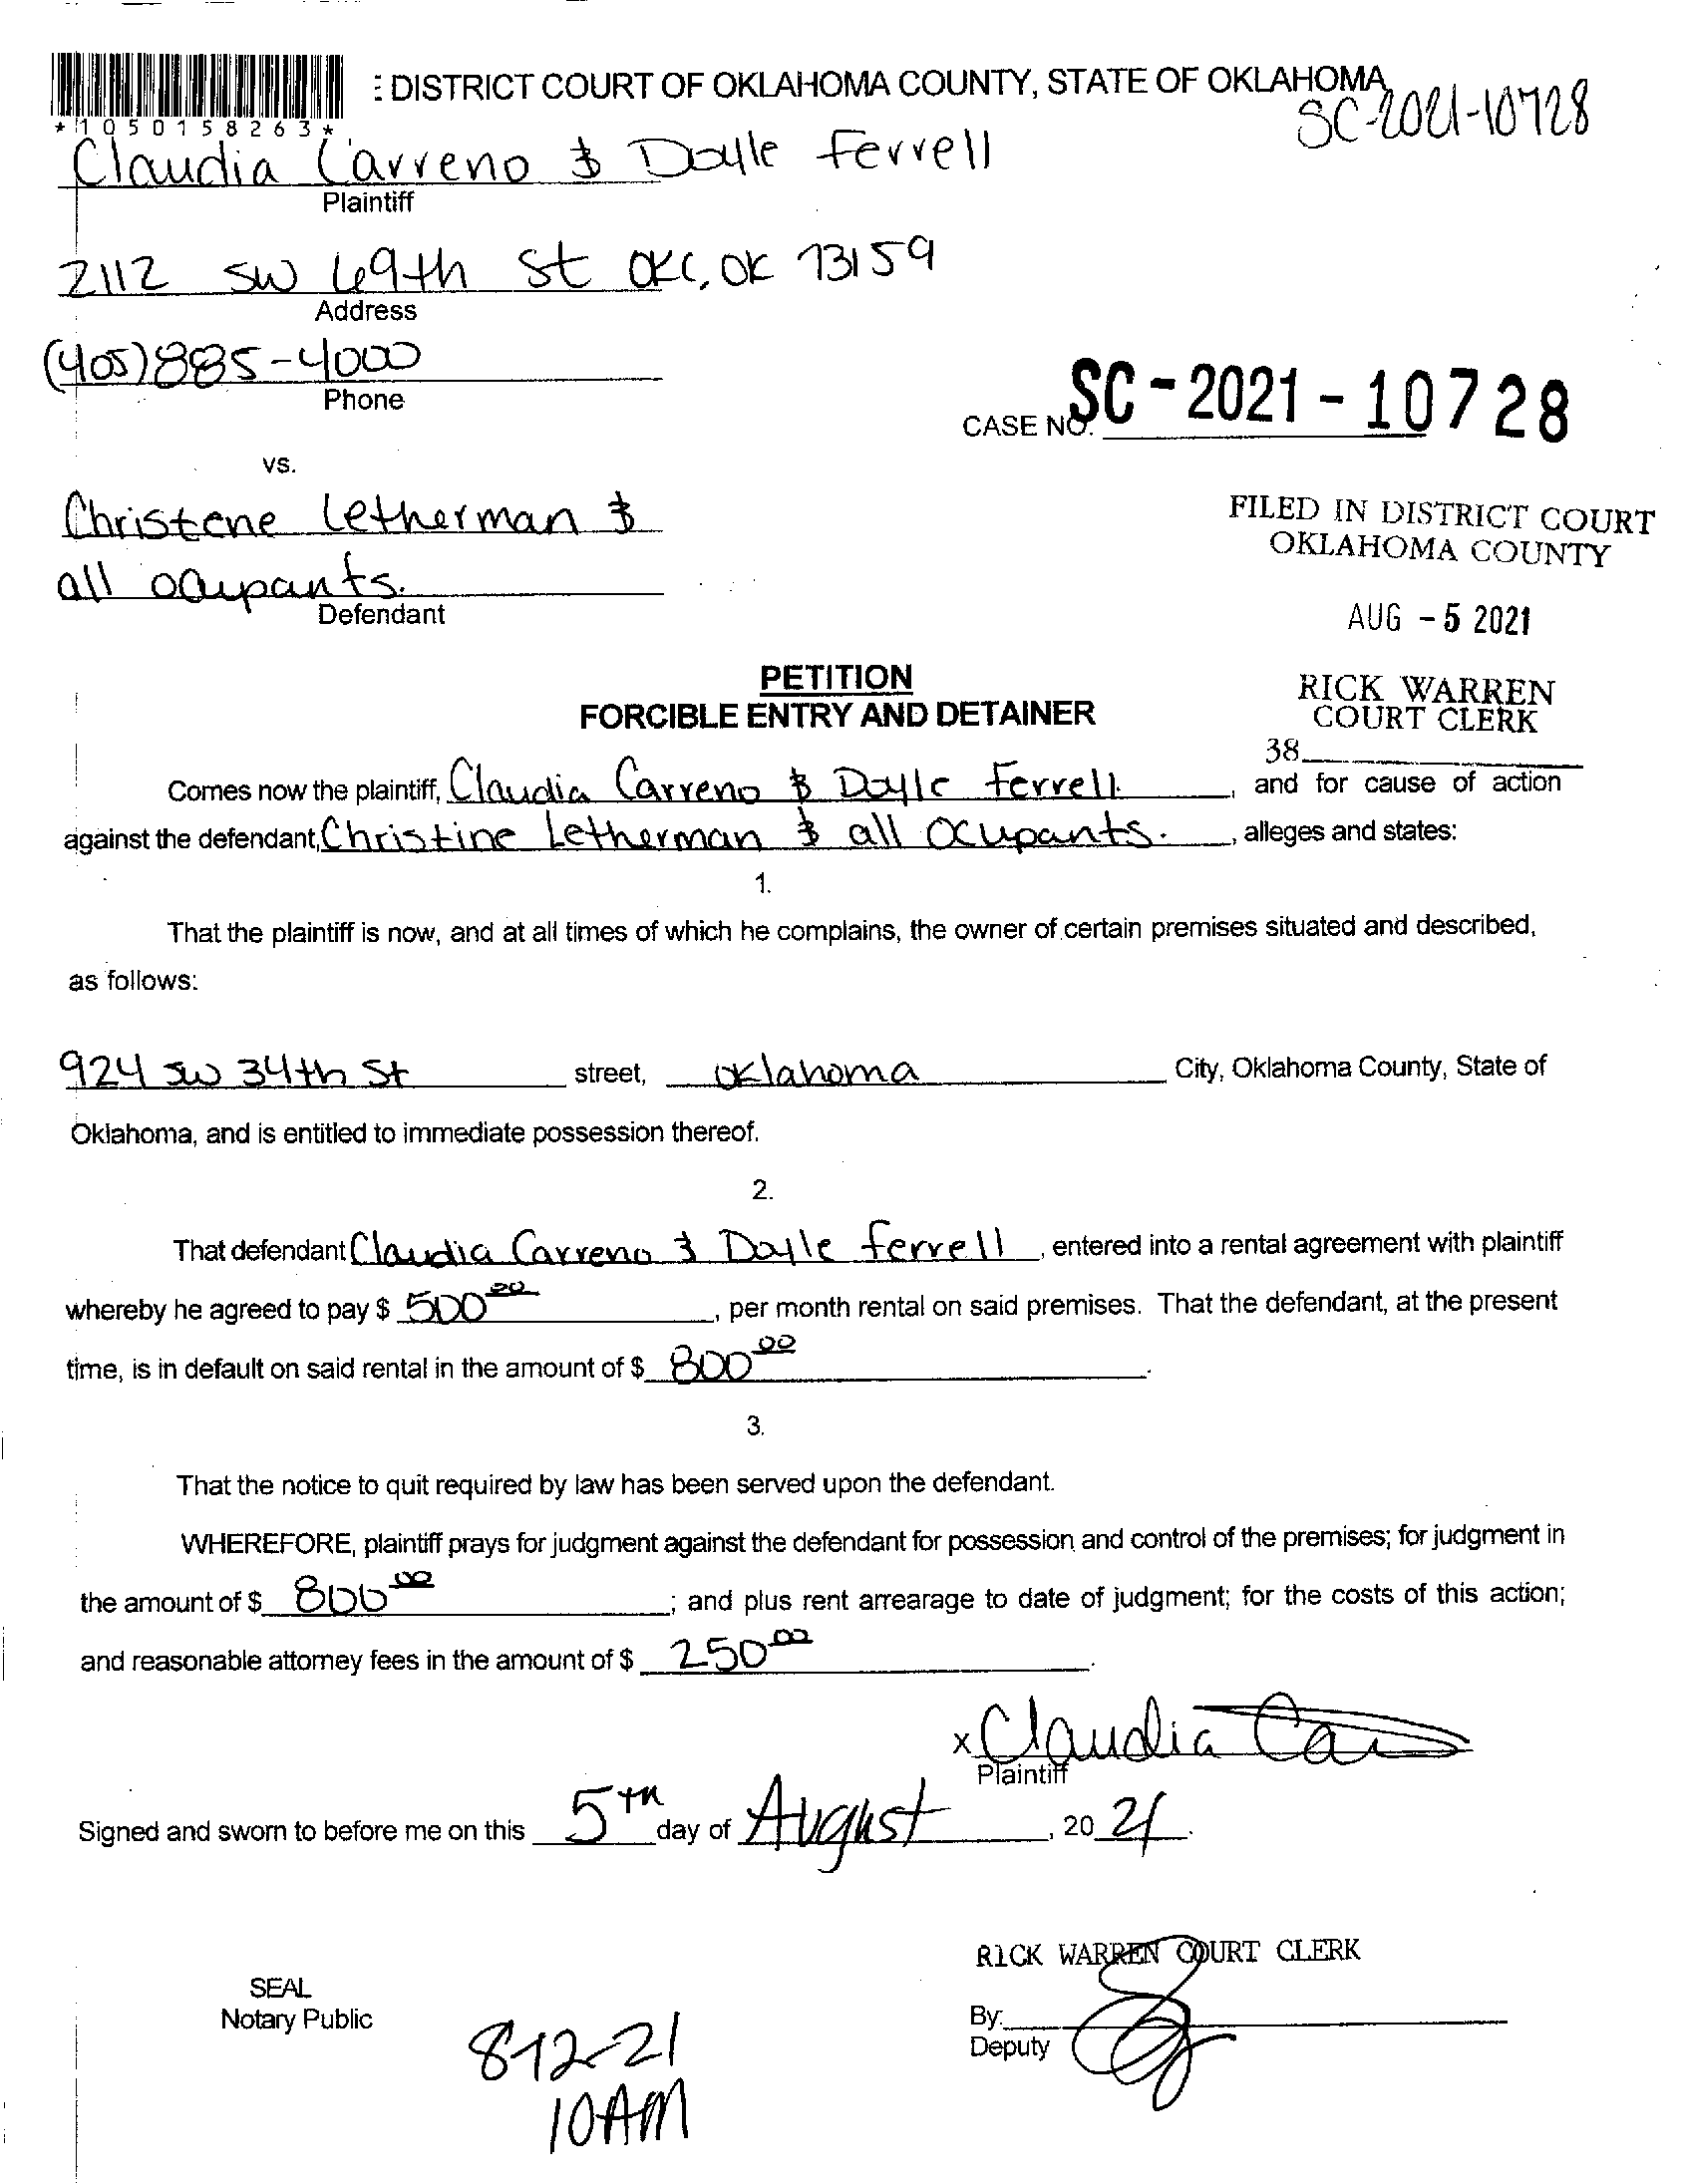 : DISTRICT COURT OF OKLAHOMA COUNTY, STATE OF OKLAHOMA
SC-2021-10728
*1050158263*
Claudia Carreno & Doyle Ferrell
Plaintiff
2112 SW 69th St OKC, OK 73159
Address
(405)885-4000
Phone
CASE NO. SC-2021-10728
vs.
Christene Letherman &
all ocupants.
Defendant
FILED IN DISTRICT COURT
OKLAHOMA COUNTY
AUG -5 2021
RICK WARREN
COURT CLERK
38
PETITION
FORCIBLE ENTRY AND DETAINER
Comes now the plaintiff, Claudia Carreno & Doyle Ferrell, and for cause of action
against the defendant, Christine Letherman & all Ocupants., alleges and states:
1.
That the plaintiff is now, and at all times of which he complains, the owner of certain premises situated and described,
as follows:
924 SW 34th St street, Oklahoma City, Oklahoma County, State of
Oklahoma, and is entitled to immediate possession thereof.
2.
That defendant Claudia Carreno & Doyle Ferrell, entered into a rental agreement with plaintiff
whereby he agreed to pay $ 500.00, per month rental on said premises. That the defendant, at the present
time, is in default on said rental in the amount of $ 800.00.
3.
That the notice to quit required by law has been served upon the defendant.
WHEREFORE, plaintiff prays for judgment against the defendant for possession and control of the premises; for judgment in
the amount of $ 800.00; and plus rent arrearage to date of judgment; for the costs of this action;
and reasonable attorney fees in the amount of $ 250.00.
x Claudia
Plaintiff
Signed and sworn to before me on this 5th day of August, 20 21.
RICK WARREN COURT CLERK
SEAL
Notary Public
By:
Deputy
8-12-21
10AM